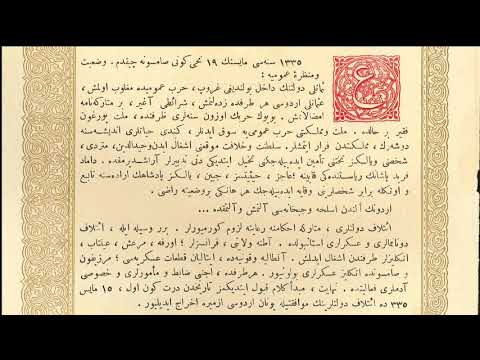 ١٣٣٥ سنه‌سی مایسنك ١٩ نجی كونی صامسونه چیقدم . وضعیت
ومنظرهٔ عمومیه :
عثمانلی دولتنك داخل بولندیغی غروپ ، حرب عمومیده مغلوب اولمش ،
عثمانلی اردوسی هر طرفده زده‌لنمش ، شرائطی آغیر ، بر متاركه‌نامه
امضالانمش . بویوك حربك اوزون سنه‌لری ظرفنده ، ملت یورغون
فقیر بر حالده . ملت ومملكتی حرب عمومی‌یه سوق ایدنلر ، كندی حیاتلری اندیشه‌سنه
دوشه‌رك ، مملكتدن فرار ایتمشلر . سلطنت وخلافت موقعنی اشغال ایدن وحیدالدین ، متردی ،
شخصنی ویالكز تختنی تأمین ایده‌بیله‌جكنی تخیل ایتدیكی دنی تدبیرلر آراشدیرمقده . داماد
فرید پاشانك ریاستنده‌كی قابینه ؛ عاجز ، حیثیتسز ، جبین ، یالكز پادشاهك اراده‌سنه تابع
واونكله برابر شخصلرینی وقایه ایده‌بیله‌جك هر هانكی بر وضعیته راضی .
اردونك الندن اسلحه وجبخانه‌سی آلنمش وآلنمقده ...
ائتلاف دولتلری ، متاركه احكامنه رعایته لزوم كورمیورلر . برر وسیله ایله ، ائتلاف
دونانمالری وعسكرلری استانبولده . آطنه ولایتی ، فرانسزلر ؛ اورفه ، مرعش ، عینتاب ،
انكلیزلر طرفندن اشغال ایدلمش . آنطالیه وقونیه‌ده ، ایتالیان قطعات عسكریه‌سی ؛ مرزیفون
و صامسونده انكلیز عسكرلری بولونیور . هر طرفده ، اجنبی ضابط ومأمورلری و خصوصی
آدملری فعالیتده . نهایت ، مبدأ كلام قبول ایتدیكمز تاریخدن درت كون اول ، ١٥ مایس
٣٣٥ ده ائتلاف دولتلرینك موافقتیله یونان اردوسی ازمیره اخراج ایدیلیور .